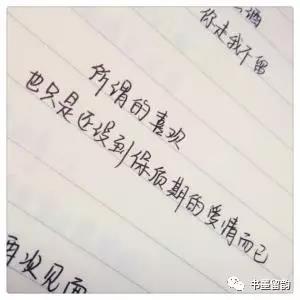 酒
你走我不留
所谓的喜欢
也只是还没到保质期的爱情而已
再次见面
书墨留韵